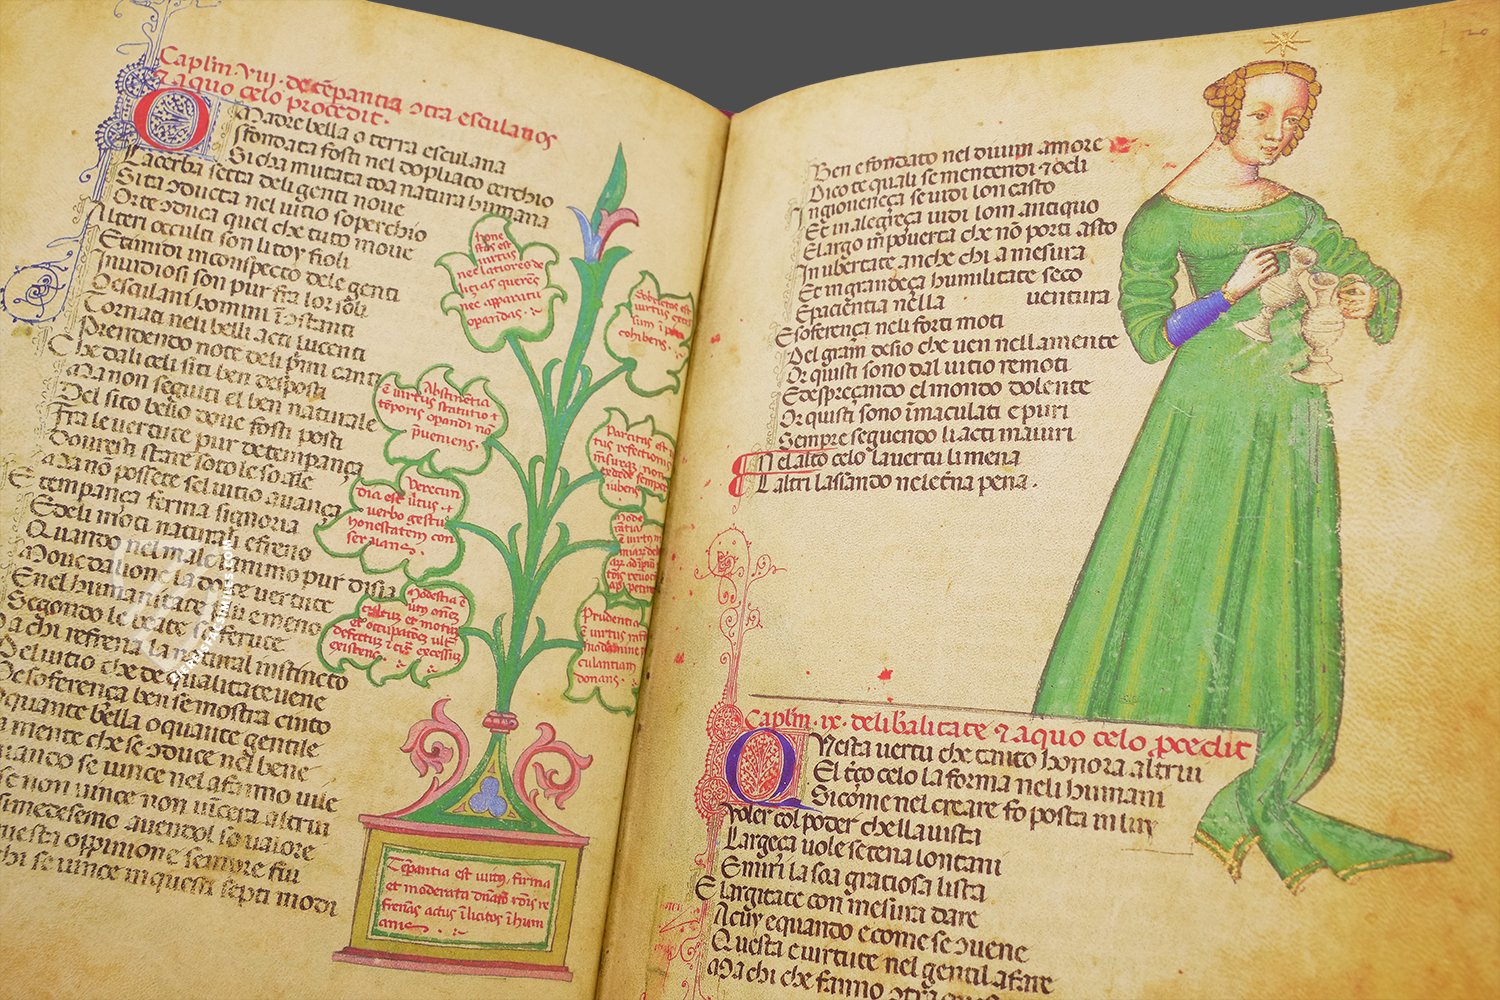 Caplm. viii. de tẽpantia ↄtra esculanos
⁊ a quo celo procedit.
O Madre bella o terra esculana
fondata fosti nel dopliato cerchio
Si cha mutata toa natura humana
Lacerba setta deli genti noue
Sita ↄducta nel uitio soperchio
Or te ↄduca quel che tuto moue
Alteri occulti son li toy fioli
Et timidi in conspecto dele genti
Inuidiosi son pur fra lor soli
O esculani homini ĩↄstanti
Tornati neli belli acti lucenti
Prendendo note deli pĩni canti
Che dali celi siti ben desposti
Ma non seguiti el ben naturale
Del sito bello doue fosti posti
Fra le uertute pur de tempança
Douresti stare soto le so ale
Ma nõ possete sel uitio auança
E tempança ferma signoria
E deli moti naturali e freno
Quando nel male lanimo pur disia
Moue da lione la dolce uertute
E nel humanitate piu e meno
Segondo le beate se ferute
a chi refrena la natural instincto
Del uitio che de qualitate uene
De soferença ben se mostra cinto
quante bella o quante gentile
a mente che se ↄduce nel bene
uando se uince nel afanno uile
se non uince non uĩcera altrui
simedesemo auendol so ualore
uesta oppinione sempre fiu
chi se uince in questi septi modi
hone
stas est
uirtus
nec latiores de
litias querẽs
nec apparatu
operidas.
Sobrietas est
uirtus exces
sum ĩ potu
cohibens.
Abstinentia
ẽ uirtus statutio ⁊
tẽporis opandi nõ
p̃ueniens.
Parcitas est
tus refectionis
mẽsuram non
excede semper
iubens
Verecun
dia est ũtus. ⁊
uerbo gestu
honestatem con
seruans.
Mode
ratia
ẽ uirtus
Modestia ẽ
uirt̃ omẽs
cultus et motus
et occupatões ult̃
defectus ⁊ cit̃ excessũ
existens.
Prudentia
ẽ uirtus
culantiam
donans.
Tẽpantia est uirtus, firma
et moderata dñatõ rõis re
frenãs actus ĩlicitos ĩ hum
anis.
Ben e fondato nel diuin amore
Dico te quali se mentendi ⁊ odi
In gioueneça se uidi lon casto
Et in alegreça uidi lom antiquo
E largo ĩ pouerta che nõ porti asto
In ubertate anche chi a mesura
Et in grandeça humilitate seco
E paciẽntia nella uentura
E soferença neli forti moti
Del gram̃ desio che uen nella mente
Or quisti sono dal uitio remoti
E despreçando el mondo dolente
Or quisti sono ĩmaculati e puri
Sempre seguendo li acti maiuri
Nel alto celo la uertu li mena
L altri lassando nel etĩna pena.
Caplm. ix. de lib̃alitate ⁊ a quo celo ꝓcedit
Questa uertu che tanto honora altrui
El tr̃ço celo la forma neli humani
Si cõme nel creare fo posta in luy
Voler col poder che lla uista
Largeça uole se tena lontani
E miri la soa gratiosa lista
E largitate con mesura dare
A cuy e quando e come se ↄuene
Questa e uirtute nel gentil afare
Ma chi che fanno ↄtra